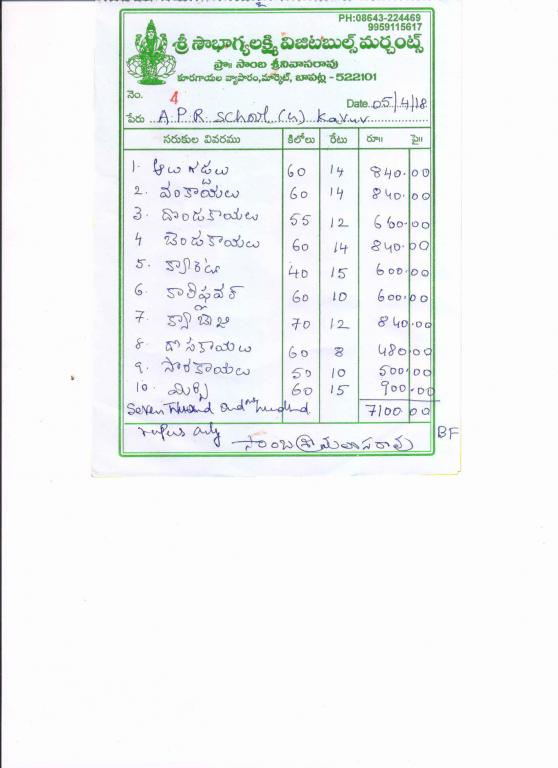 PH:08643-224469
9959115617
శ్రీ సౌభాగ్యలక్ష్మి విజిటబుల్స్ మర్చంట్స్
ప్రొః సాంబ శ్రీనివాసరావు
కూరగాయల వ్యాపారం, మార్కెట్, బాపట్ల - 522101
నెం. 4
Date 05/4/18
పేరు A.P.R. School (G) Kavur
సరుకుల వివరము కిలోలు రేటు రూ॥ పై॥
1. ఆలుగడ్డలు 60 14 840.00
2. వంకాయలు 60 14 840.00
3. దొండకాయలు 55 12 660.00
4 బెండకాయలు 60 14 840.00
5. క్యారెట్ 40 15 600.00
6. కాలిఫ్లవర్ 60 10 600.00
7. క్యాబేజి 70 12 840.00
8. దోసకాయలు 60 8 480.00
9. సొరకాయలు 50 10 500.00
10. మిర్చి 60 15 900.00
Seven Thousand One hundred 7100 00
rupees only
BF